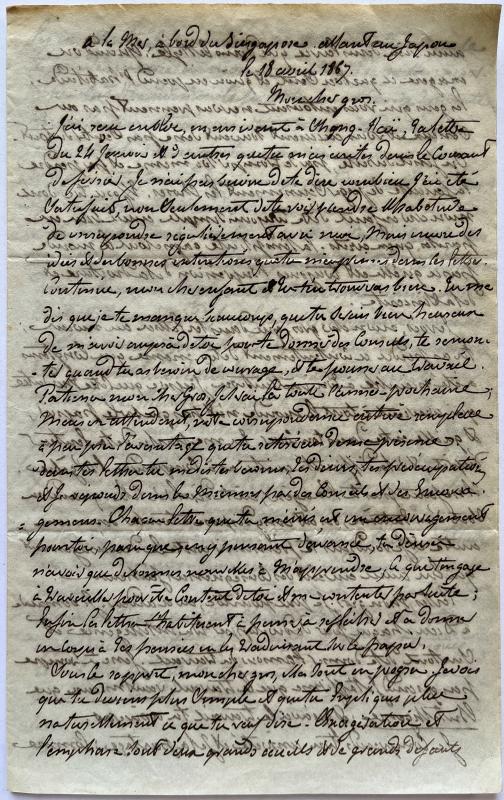 à la Mer, à bord du Singapore allant au Japon
le 18 avril 1867.
Mon cher gros.
J'ai reçu en arrivant à Chang-Haï, ta lettre
du 24 Janvier & autres que tu m'as écrites dans le Courant
de février. Je n'ai pas besoin de te dire combien j'ai été
satisfait, non seulement de te voir prendre l'habitude
de correspondre régulièrement avec moi, mais encore des
idées & des bonnes intentions que tu m'exprimes dans tes lettres.
Continue, mon cher enfant & tu t'en trouveras bien. Tu me
dis que je te manque beaucoup, que tu serais bien heureux
de m'avoir auprès de toi pour te donner des Conseils, te remon-
-ter quand tu as besoin de courage, & te pousser au travail.
Patience mon cher Gros, je serai là toute l'année prochaine,
Mais en attendant, notre correspondance active remplace
à peu près l'avantage que tu retirerais de ma présence;
dans tes lettres tu me dis tes besoins, tes désirs, tes préoccupations
& je réponds dans les miennes par des Conseils et des Encoura-
-gemens. Chaque lettre que tu m'écris est un encouragement
pour toi, parce que, en y pensant d'avance, tu désires
n'avoir que de bonnes nouvelles à m'apprendre, ce qui t'engage
à travailler pour être Content de toi & me contenter par suite;
Enfin tes lettres t'habituent à penser, à réfléchir et à donner
un corps à tes pensées en les traduisant sur le papier.
Sous ce rapport, mon cher gros, il y a tout un progrès. Je vois
que tu deviens plus simple et que tu expliques plus
naturellement ce que tu veux dire. L'exagération et
l'emphase sont deux grands écueils & de grands défauts